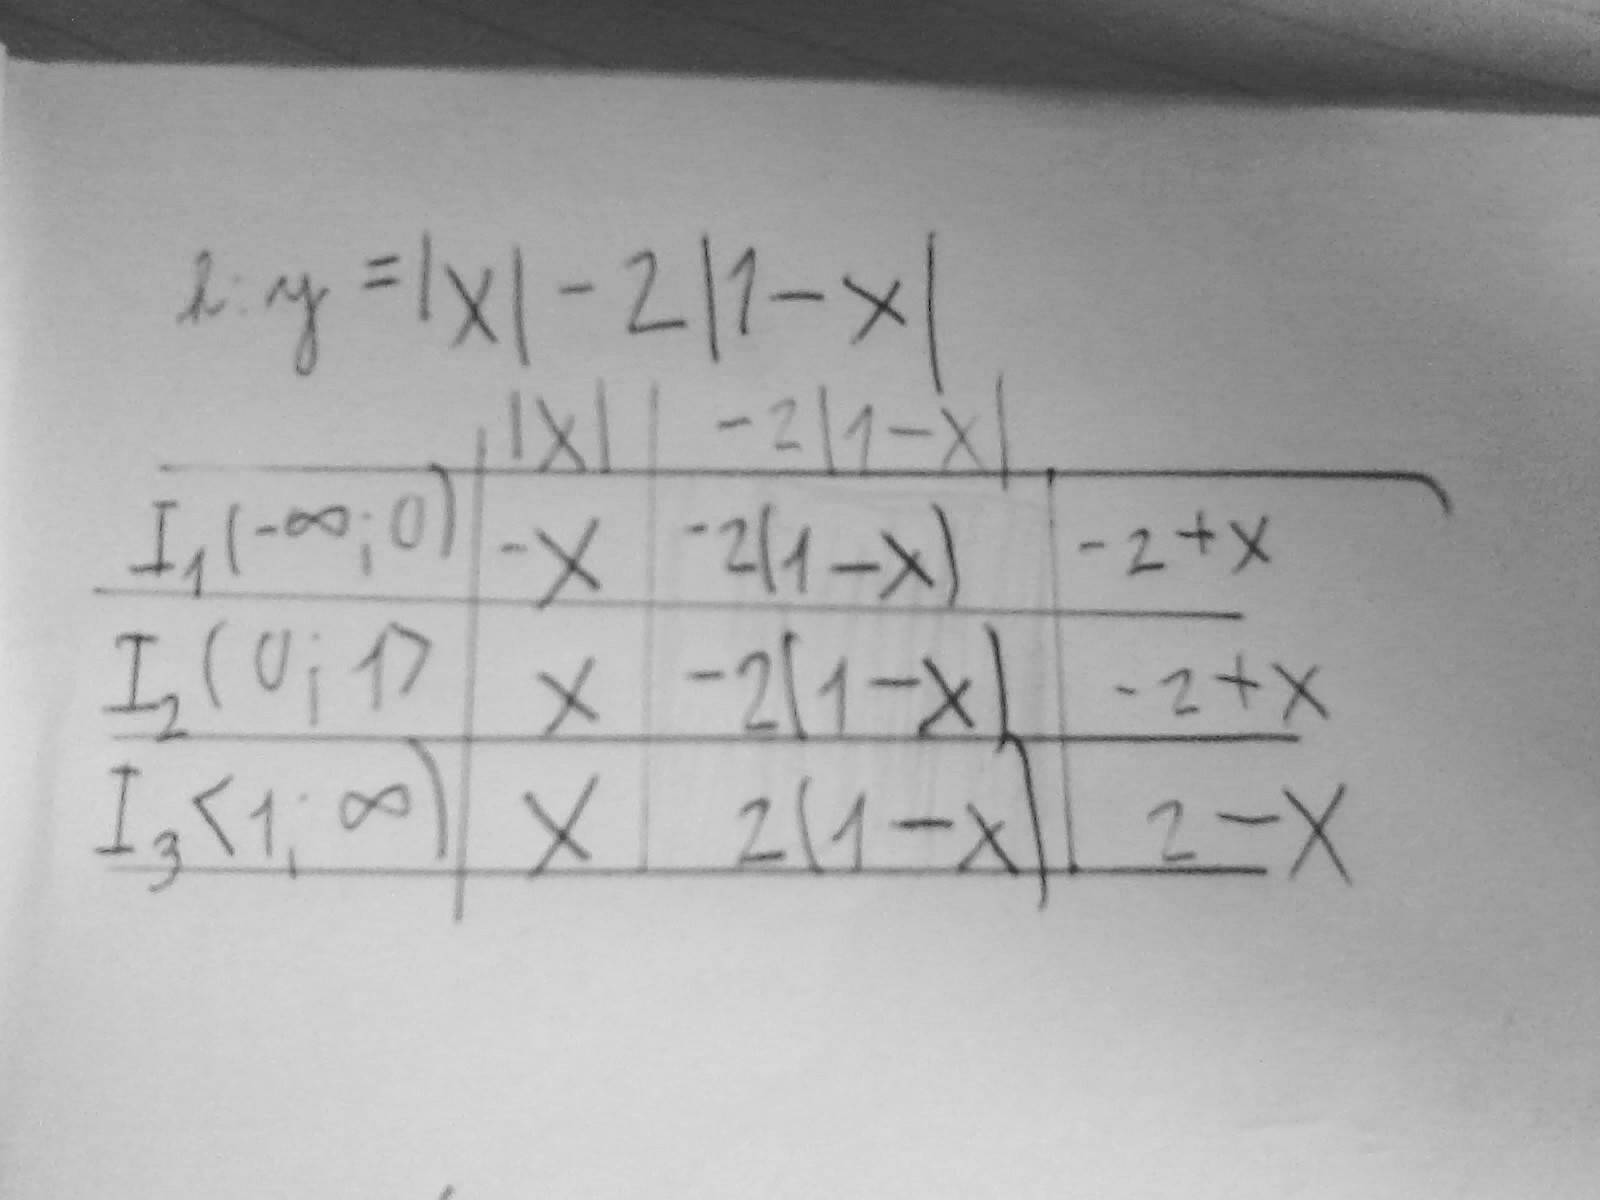 h: y = |x| - 2|1 - x|
|x| -2|1-x|
I₁ (-∞; 0) -x -2(1-x) -2+x
I₂ (0; 1> x -2(1-x) -2+x
I₃ <1; ∞) x 2(1-x) 2-x